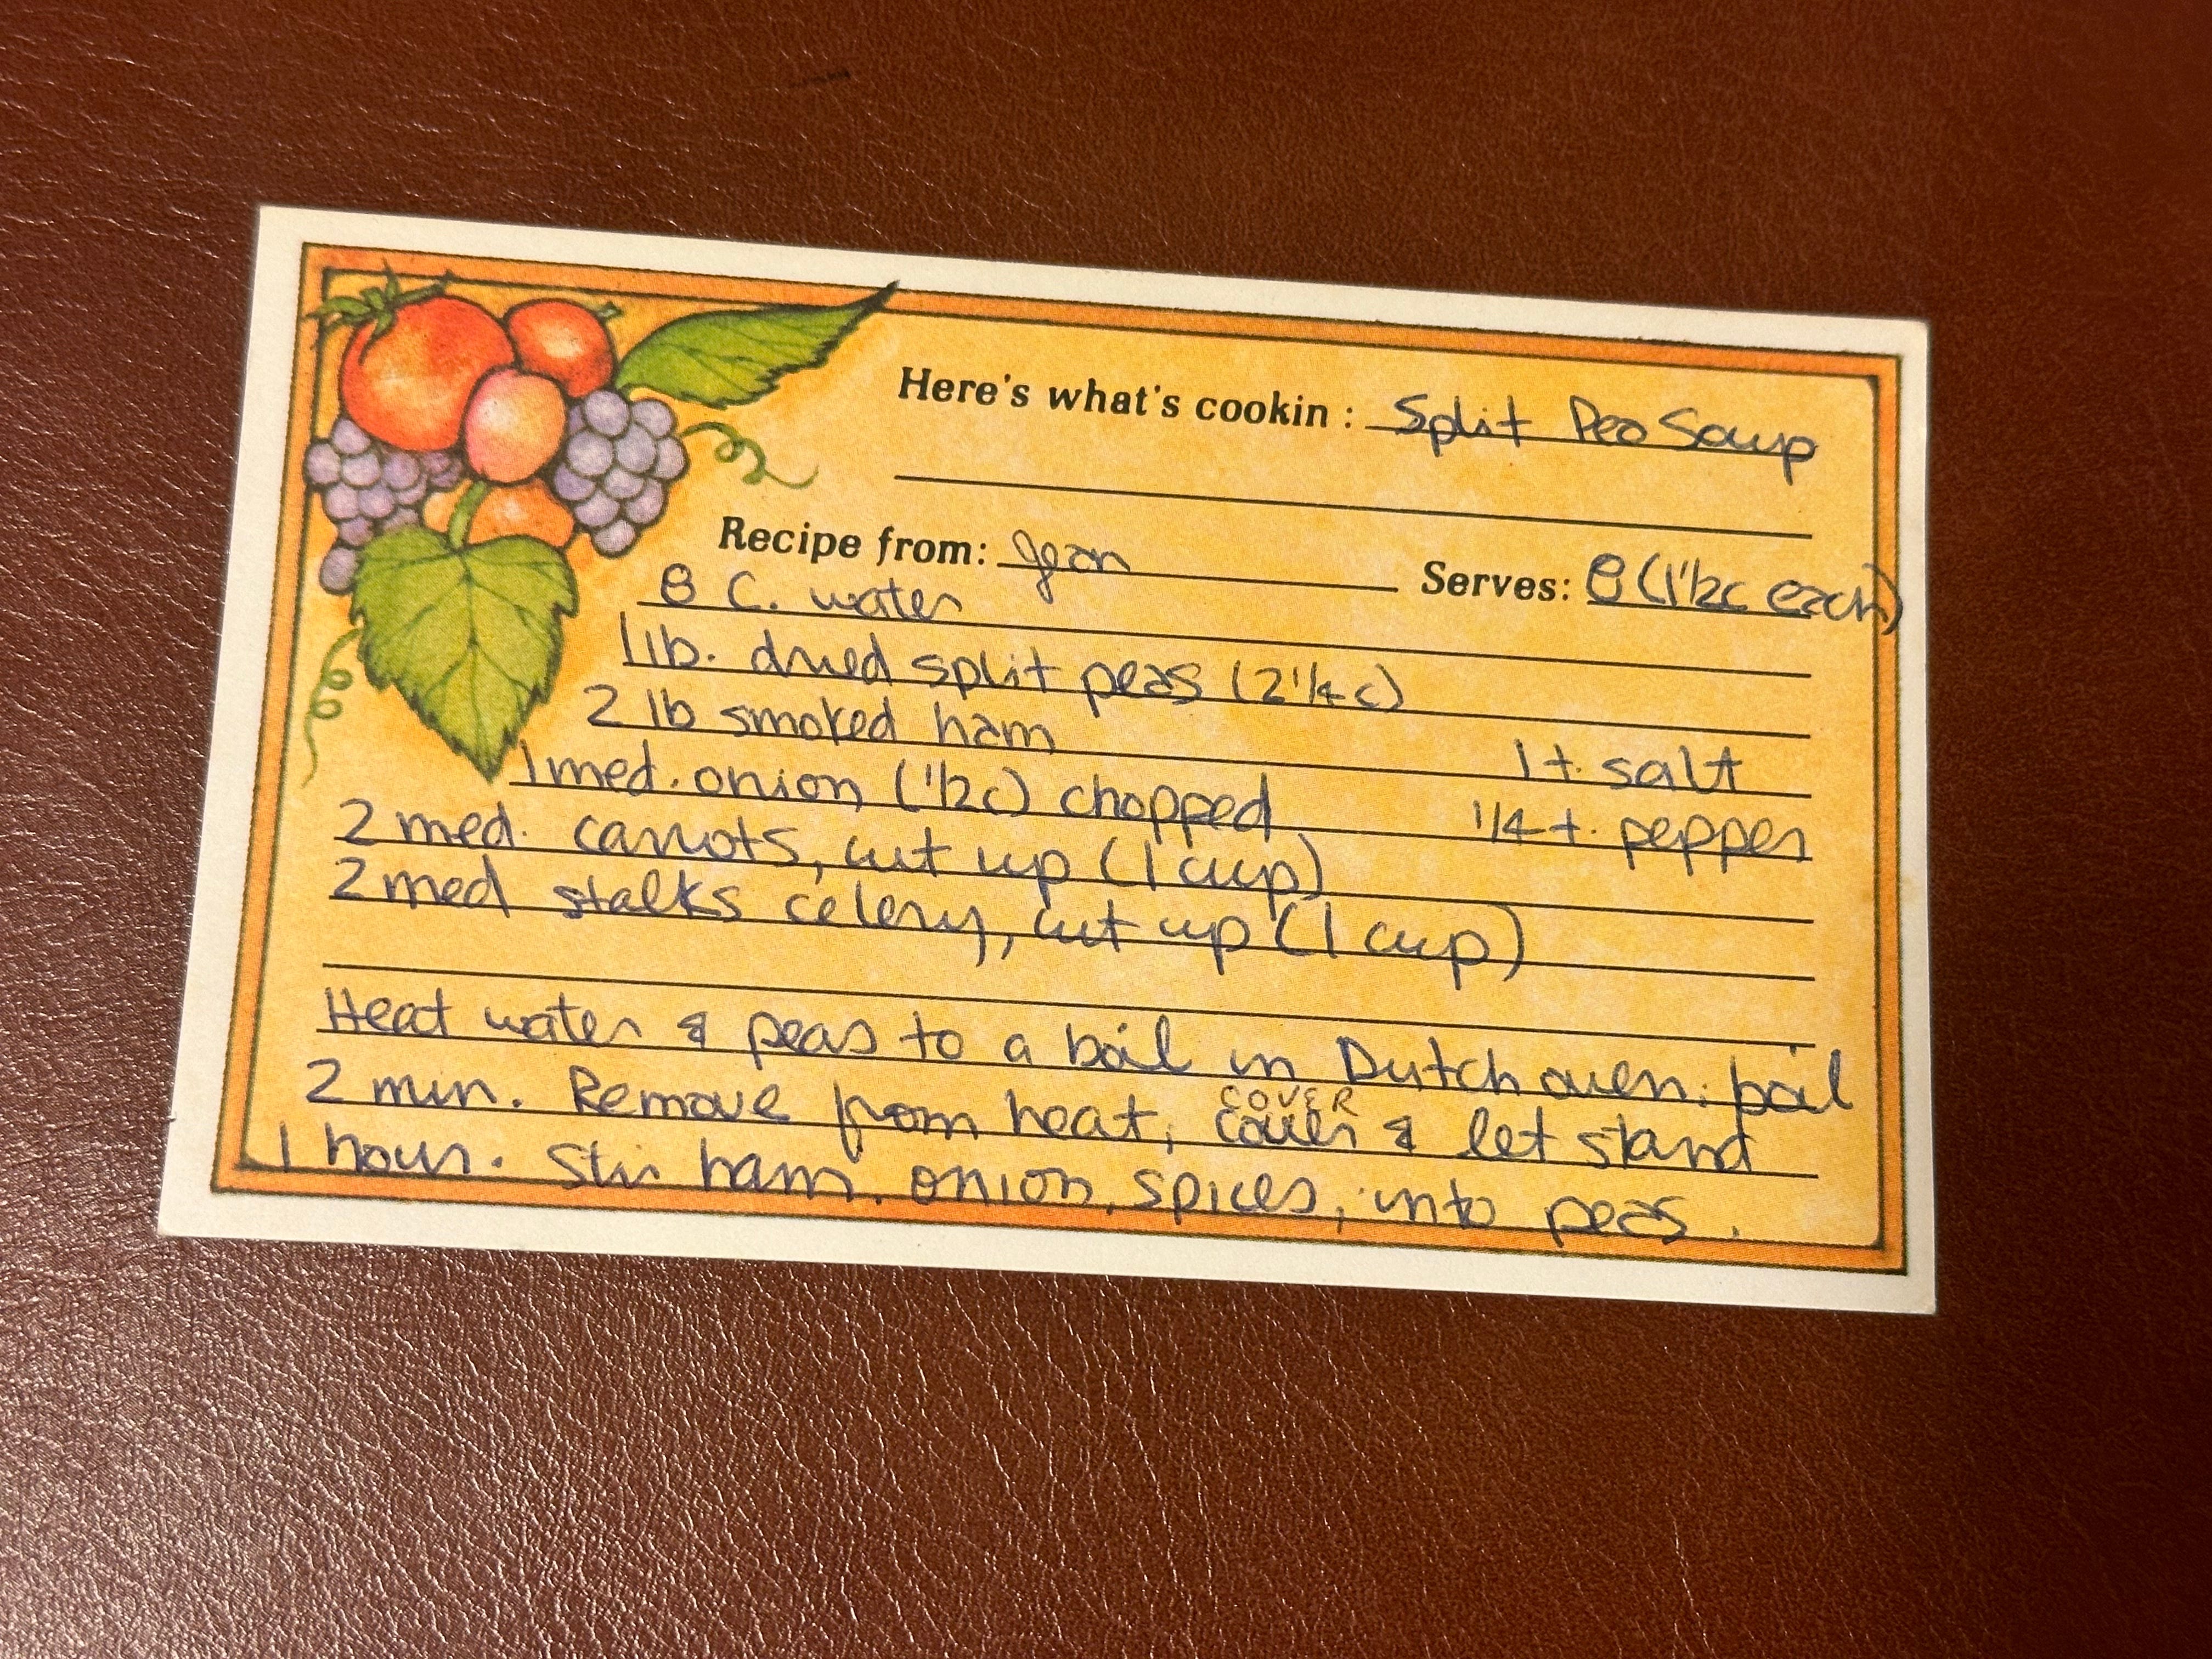 Here's what's cookin: Split Pea Soup
Recipe from: Jean Serves: 8 (1 1/2c each)
8 C. water
1 lb. dried split peas (2 1/4 c)
2 lb smoked ham
1 t. salt
1 med. onion (1/2c) chopped
1/4 t. pepper
2 med. carrots, cut up (1 cup)
2 med stalks celery, cut up (1 cup)
Heat water & peas to a boil in Dutch oven; boil
2 min. Remove from heat, COVER cover & let stand
1 hour. Stir ham, onion, spices, into peas.